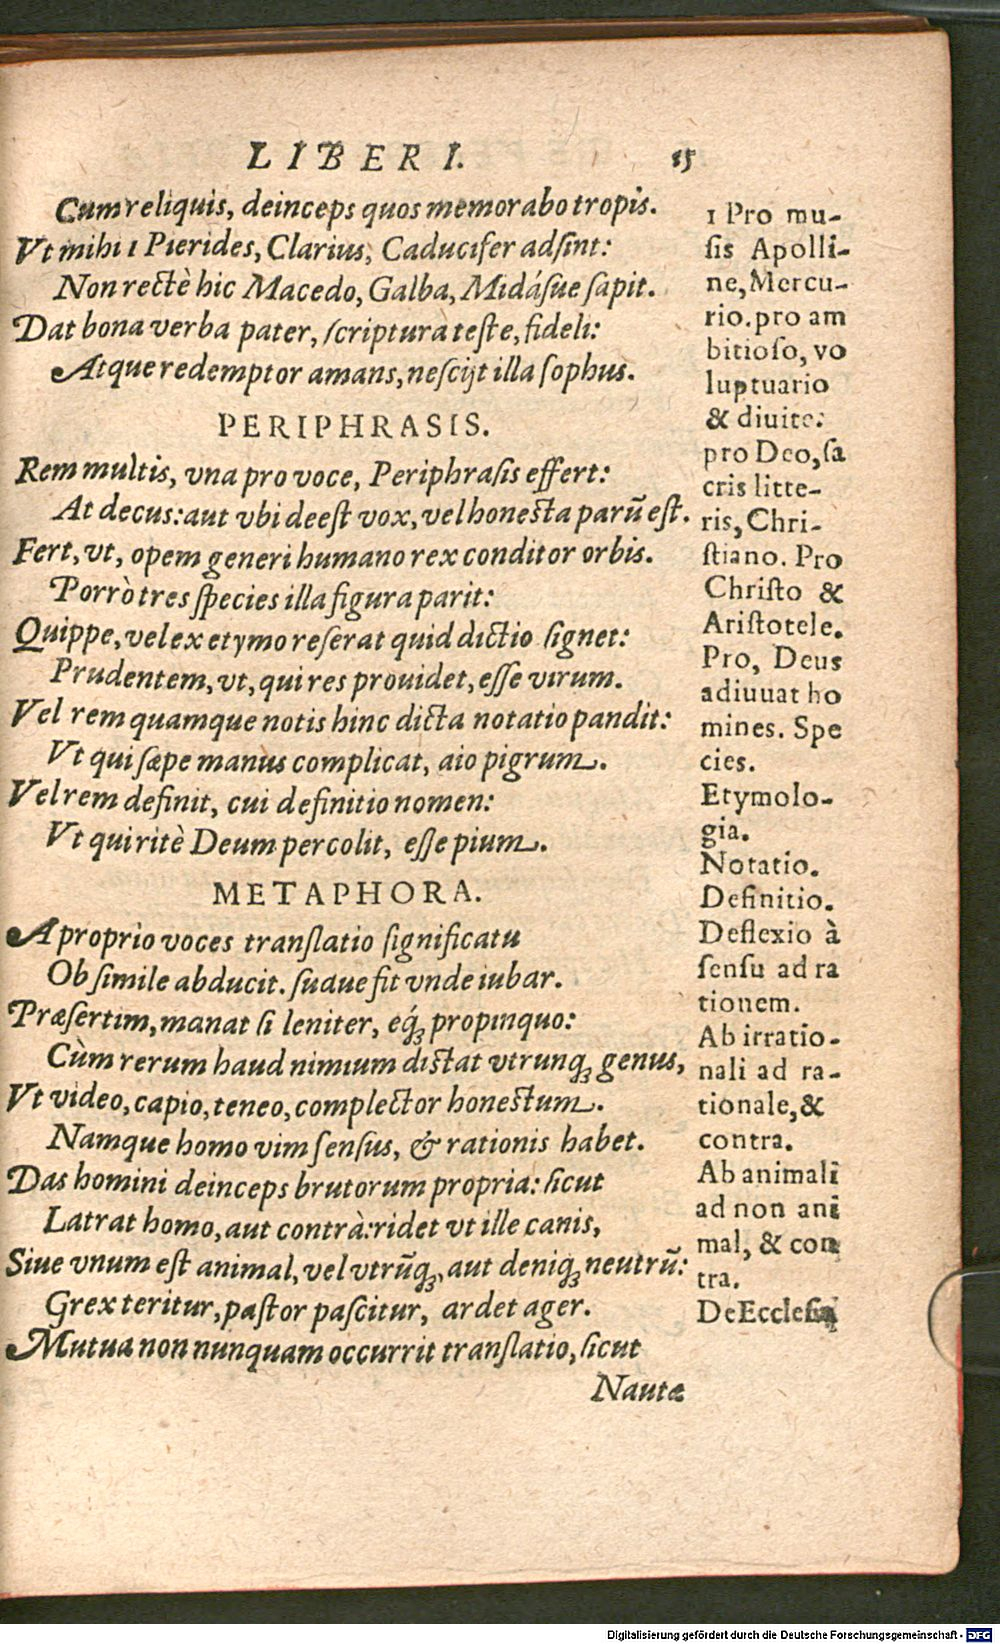 LIBERI. 15
Cum reliquis, deinceps quos memorabo tropis.
Vt mihi 1 Pierides, Clarius, Caducifer adſint:
Non rectè hic Macedo, Galba, Midáſue ſapit.
Dat bona verba pater, ſcriptura teſte, fideli:
Atque redemptor amans, neſcijt illa ſophus.
PERIPHRASIS.
Rem multis, vna pro voce, Periphraſis effert:
At decus: aut vbi deeſt vox, vel honeſta parū eſt.
Fert, vt, opem generi humano rex conditor orbis.
Porrò tres ſpecies illa figura parit:
Quippe, vel ex etymo reſerat quid dictio ſignet:
Prudentem, vt, qui res prouidet, eſſe virum.
Vel rem quamque notis hinc dicta notatio pandit:
Vt qui ſæpe manus complicat, aio pigrum.
Vel rem definit, cui definitio nomen:
Vt qui ritè Deum percolit, eſſe pium.
METAPHORA.
A proprio voces tranſlatio ſignificatu
Ob ſimile abducit. ſuaue fit vnde iubar.
Præſertim, manat ſi leniter, eq́ꝫ propinquo:
Cùm rerum haud nimium diſtat vtrunqꝫ genus,
Vt video, capio, teneo, complector honeſtum.
Namque homo vim ſenſus, & rationis habet.
Das homini deinceps brutorum propria: ſicut
Latrat homo, aut contrà: ridet vt ille canis,
Siue vnum eſt animal, vel vtrūqꝫ, aut deniqꝫ neutrū:
Grex teritur, paſtor paſcitur, ardet ager.
Mutua non nunquam occurrit tranſlatio, ſicut
Nautæ
1 Pro mu-
ſis Apolli-
ne, Mercu-
rio. pro am
bitioſo, vo
luptuario
& diuite:
pro Deo, ſa
cris litte-
ris, Chri-
ſtiano. Pro
Chriſto &
Ariſtotele.
Pro, Deus
adiuuat ho
mines. Spe
cies.
Etymolo-
gia.
Notatio.
Definitio.
Deflexio à
ſenſu ad ra
tionem.
Ab irratio-
nali ad ra-
tionale, &
contra.
Ab animali
ad non ani
mal, & con
tra.
De Eccleſia
Digitalisierung gefördert durch die Deutsche Forschungsgemeinschaft - DFG